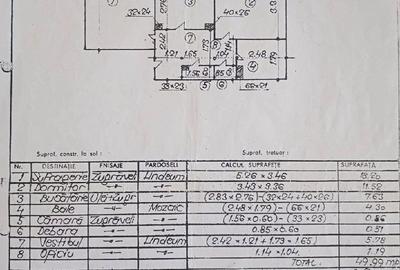 1
3
32×24
2.76
40×26
2.42
7
1.73
8
1.14
1.21
1.65
1.04
2.48
1.79
1.56
.85
4
33×23
5
6
66×21
Supraf. constr. la sol :
Supraf. trotuar :
Nr. DESTINAȚIE FINISAJE PARDOSELI CALCUL SUPRAFEȚE SUPRAFAȚA
1 Sufragerie Zugrăveli Linoleum 5.26 × 3.46 18.20
2 Dormitor —"— —"— 3.43 × 3.36 11.52
3 Bucătărie —"— (2.83 × 2.76)-(32×24+40×26) 7.63
4 Baie —"— Mozaic (2.48 × 1.79) - (66×21) 4.30
5 Cămară Zugrăveli —"— (1.56 × 0.60) - (33×23) 0.86
6 Debara —"— —"— 0.85 × 0.60 0.51
7 Vestibul —"— Linoleum (2.42 × 1.21 + 1.73 × 1.65) 5.78
8 Oficiu —"— —"— 1.14 × 1.04 1.19
TOTAL 49.99 mp